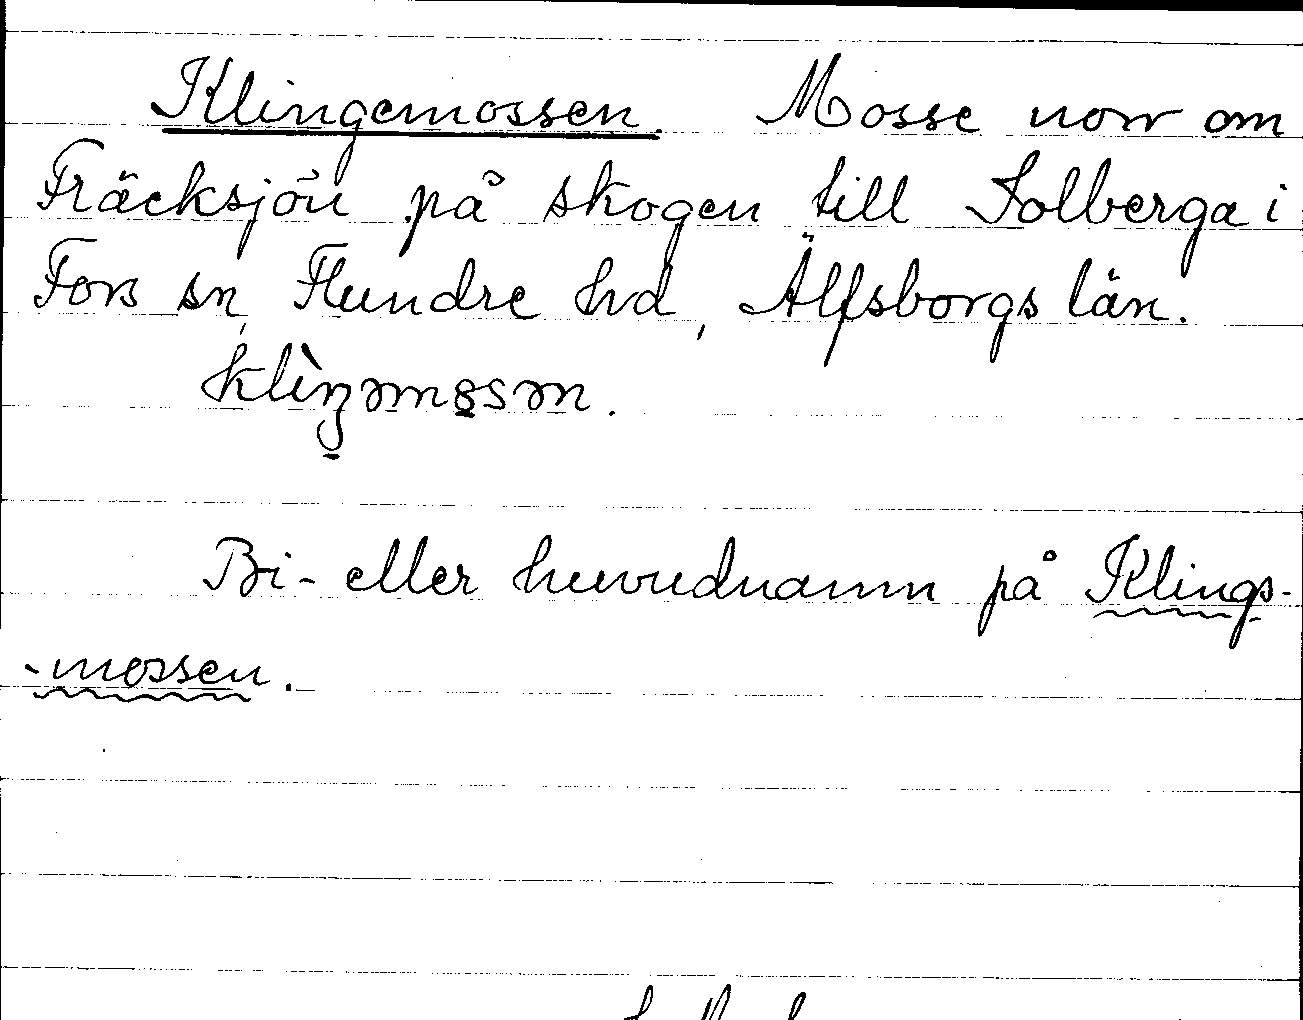 Klingemossen. Mosse norr om
Fräcksjön på skogen till Solberga i
Fors sn, Flundre hd, Älfsborgs län.
Bi- eller huvudnamn på Klings-
-mossen.